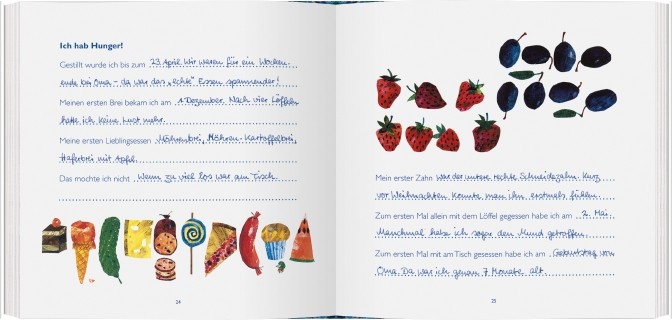 Ich hab Hunger!
Gestillt wurde ich bis zum 23. April. Wir waren für ein Wochen-
ende bei Oma – da war das „echte" Essen spannender!
Meinen ersten Brei bekam ich am 1. Dezember. Nach vier Löffeln
hatte ich keine Lust mehr.
Meine ersten Lieblingsessen Möhrenbrei, Möhren-Kartoffelbrei,
Haferbrei mit Apfel.
Das mochte ich nicht Wenn zu viel los war am Tisch.
24
Mein erster Zahn war der untere rechte Schneidezahn. Kurz
vor Weihnachten konnte man ihn erstmals fühlen.
Zum ersten Mal allein mit dem Löffel gegessen habe ich am 2. Mai.
Manchmal habe ich sogar den Mund getroffen.
Zum ersten Mal mit am Tisch gesessen habe ich am Geburtstag von
Oma. Da war ich genau 7 Monate alt.
25